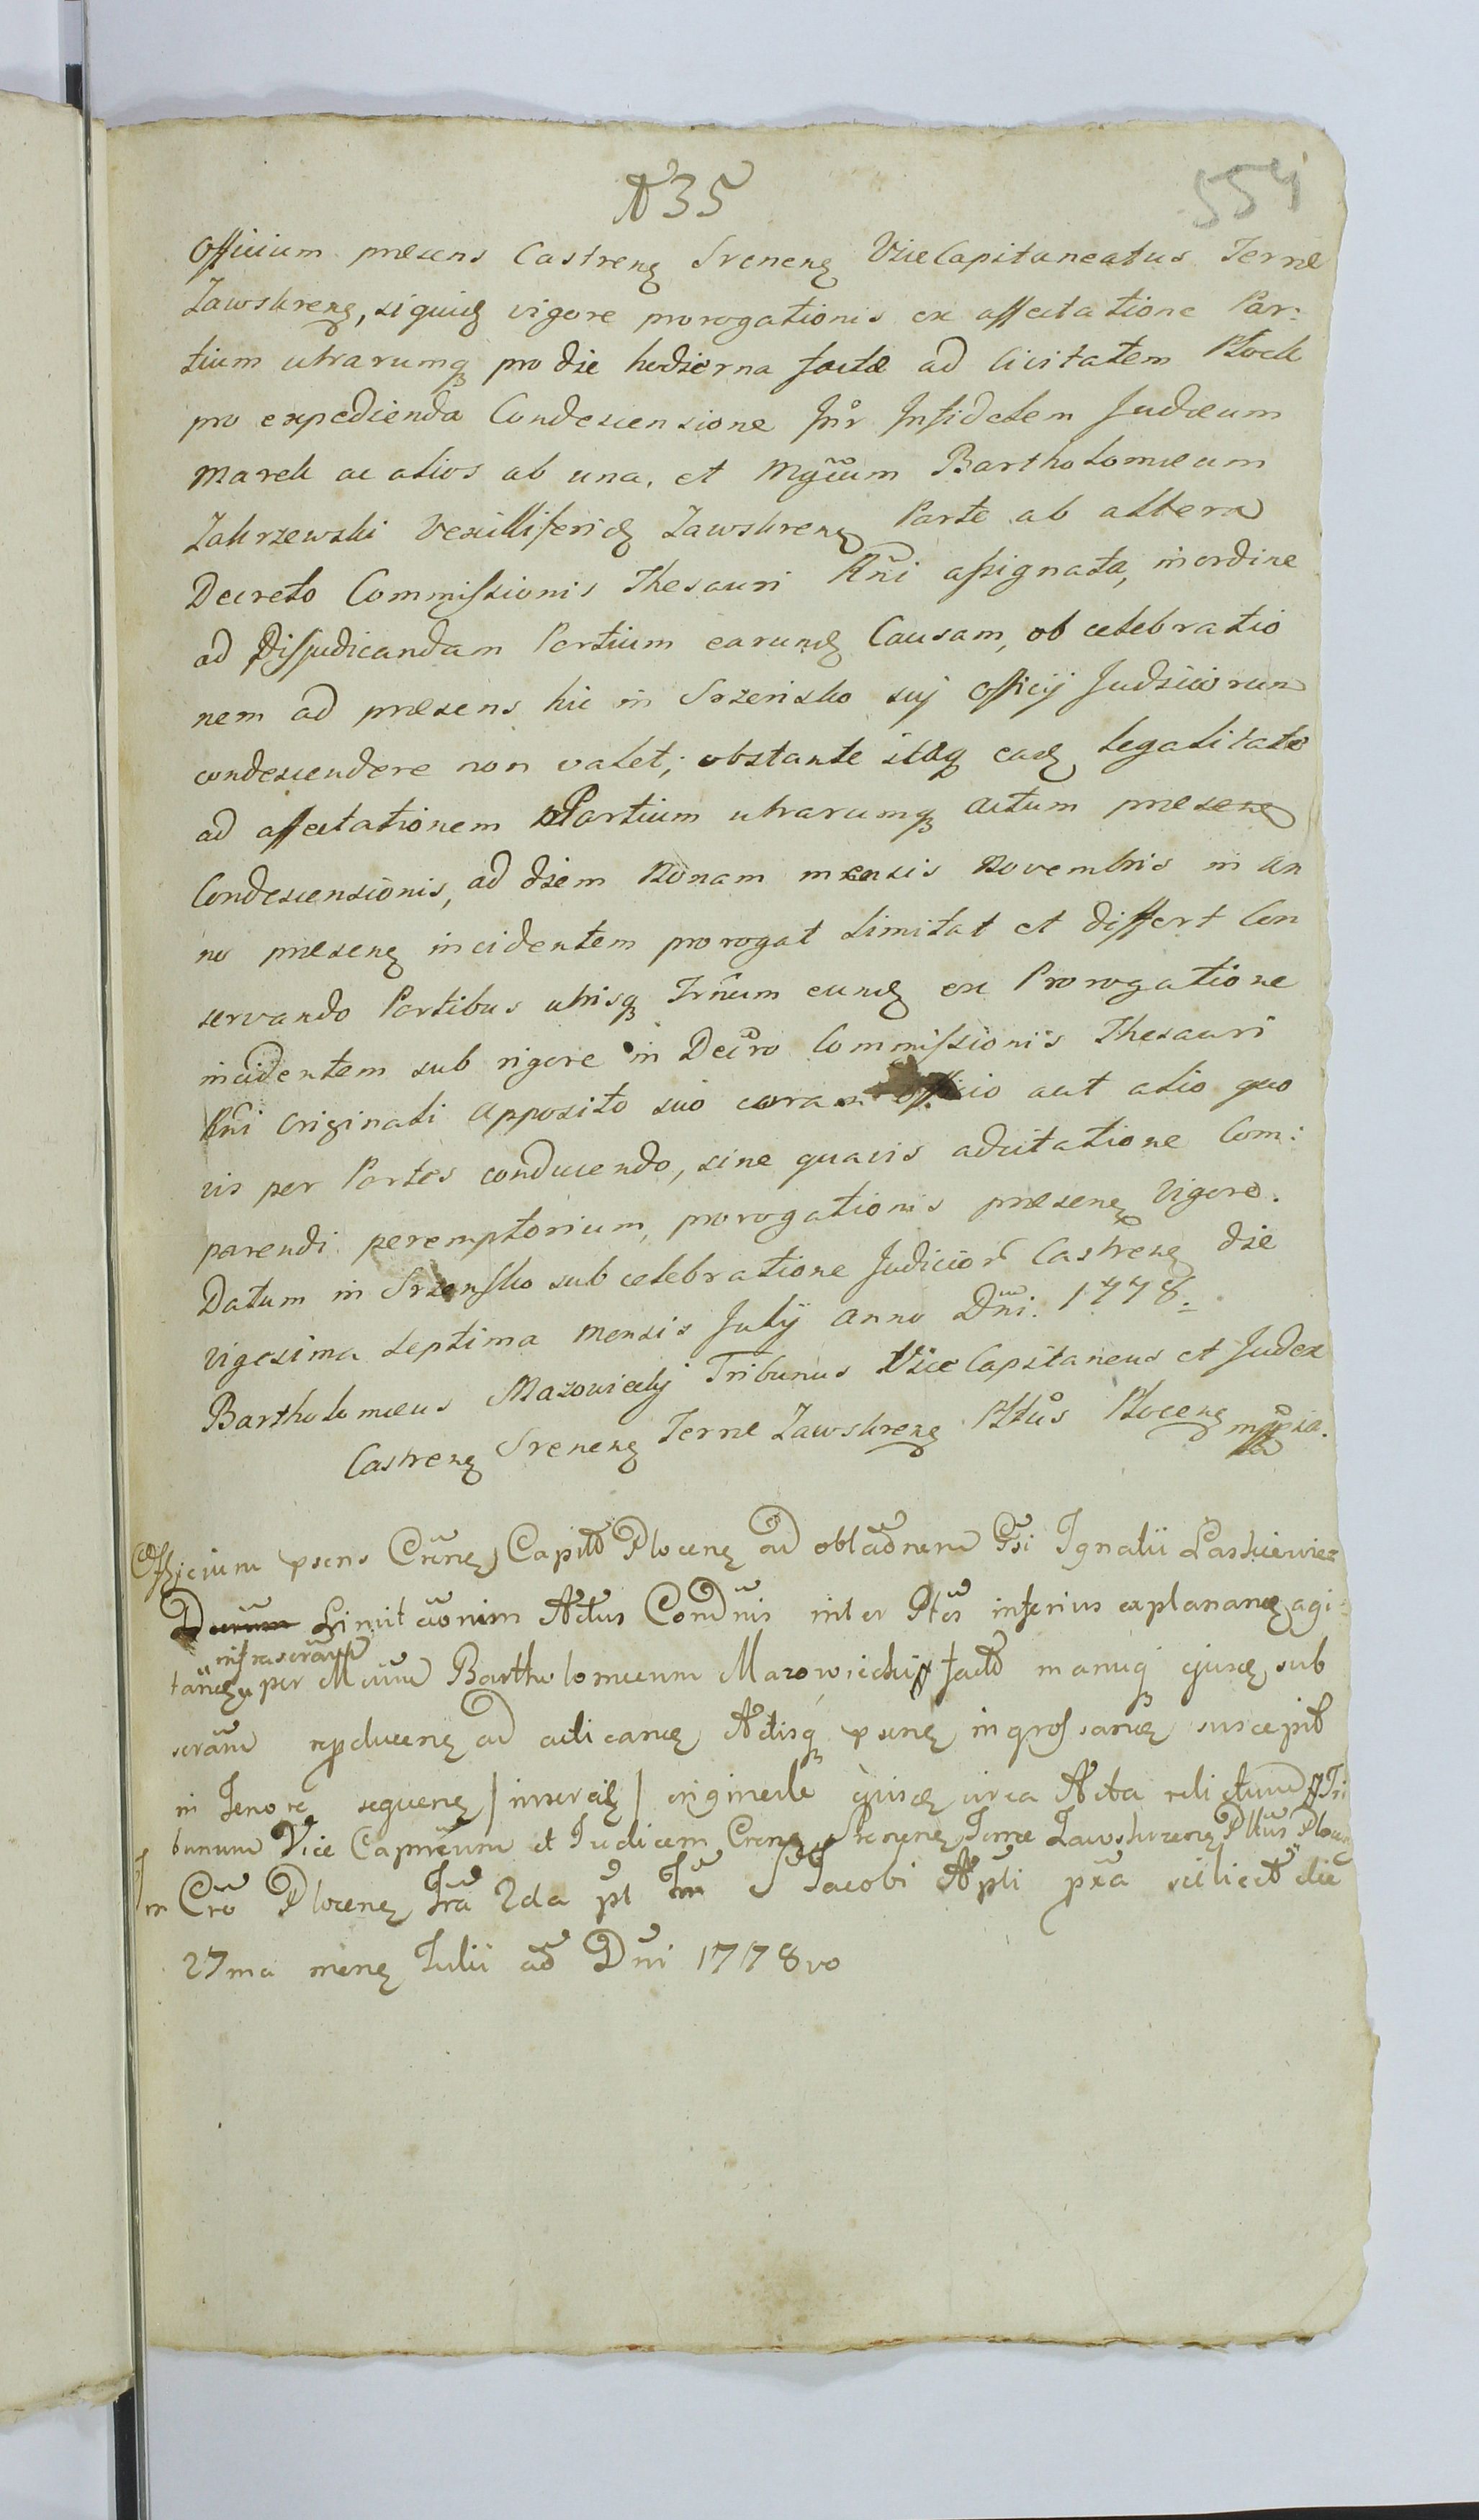 N 35
554
Officium præsens Castrens Srenens Vice Capitaneatus Terræ
Zawskrens, siquid vigore prorogationis ex affectatione Par:
tium utrarumq pro die hodierna factæ ad Civitatem Płock
pro expedienda Condescensione Inr Infidelem Judæum
Marek ac alios ab una, et Mgcum Bartholomæum
Zakrzewski Vexilliferid Zawskrens Parte ab altera
Decreto Commissionis Thesauri Rni assignata, in ordine
ad Disjudicandam Partium earund Causam, ob celebratio
nem ad præsens hic in Srzensko suj Officij Judiciorum
condescendere non valet; obstante itaq ead legalitate
ad affectationem Partium utrarumq actum præsens
Condescensionis, ad diem Nonam mensis Novembris in an
no præsens incidentem prorogat limitat et differt Con
servando Partibus utrisq Trnum eund ex Prorogatione
incidentem sub rigore in Decro Commissionis Thesauri
Rni Originali apposito suo coram officio aut alio quo
vis per Partes conducendo, sine quavis adcitatione Com:
parendi peremptorium, prorogationis præsens vigore.
Datum in Srzensko sub celebratione Judicior Castrens die
vigesima septima mensis Julij anno Dni. 1778.
Bartholomæus Mazowiecky Tribunus Vice Capitaneus et Judex
Castrens Srenens Terræ Zawskrens Pltus Plocens mppia.
Officium psens Crens Capitl Plocens ad oblaonem Gsi Ignatii Laskiewicz
Decrum Limitaonim Actus Condnis inter Ptes inferius explanans agi
infrascram
tans per Mcum Bartholomeum Mazowiecki # factd manuq ejusd sub
scram reproducens ad acticand Actisq psens ingrossand suscepit
in Tenore sequens / inseried / originale ejusd circa Acta relictum # Tri
bunum Vice Capneum et Judicem Crens Srenens Terræ Zawskrzens Pltus Plocens
In Cro Plocens Fra 2da pt Fm S Jacobi Apli pxa scilicet die
27ma mens Julii ao Dni 1778vo